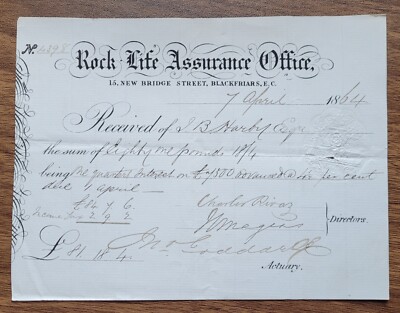 No. 4898
Rock Life Assurance Office,
15, NEW BRIDGE STREET, BLACKFRIARS, E.C.
7 April 1864
Received of J B Harby Esqr
the sum of Eighty one pounds 18/4
being one quarters Interest on £7300 advanced @ per cent
due 1 April
£84 7 6 Charles Rivaz
Income Tax 2 9 2
Directors.
£ 81. 18. 4. Jno Goddard
Actuary.